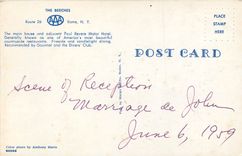 THE BEECHES
Route 26 AAA Rome, N. Y.
The main house and adjacent Paul Revere Motor Hotel.
Generally known as one of America's most beautiful
countryside restaurants. Fireside and candlelight dining.
Recommended by Gourmet and the Diners' Club.
PLACE
STAMP
HERE
POST CARD
Scene of Reception
Marriage de John
June 6, 1959
Color photo by Anthony Morris